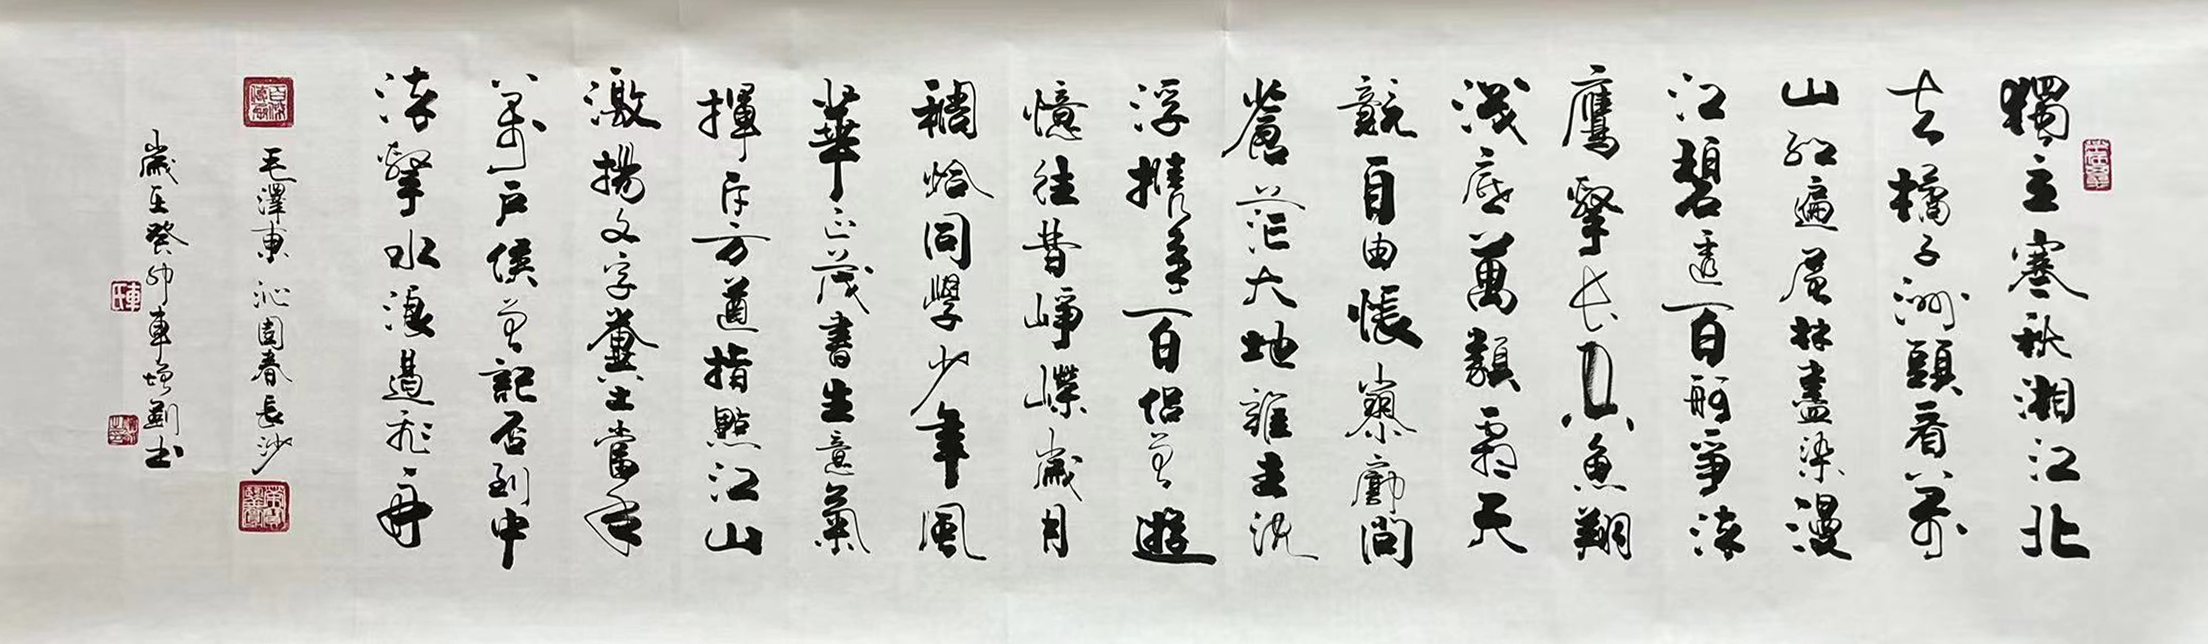 獨立寒秋湘江北
去橘子洲頭看萬
山紅遍層林盡染漫
江碧透百舸爭流
鷹擊長空魚翔
淺底萬類霜天
競自由悵寥廓問
蒼茫大地誰主沉
浮攜來百侶曾遊
憶往昔崢嶸歲月
稠恰同學少年風
華正茂書生意氣
揮斥方遒指點江山
激揚文字糞土當年
萬戶侯曾記否到中
流擊水浪遏飛舟
毛澤東沁園春長沙
歲在癸卯車增書
車氏